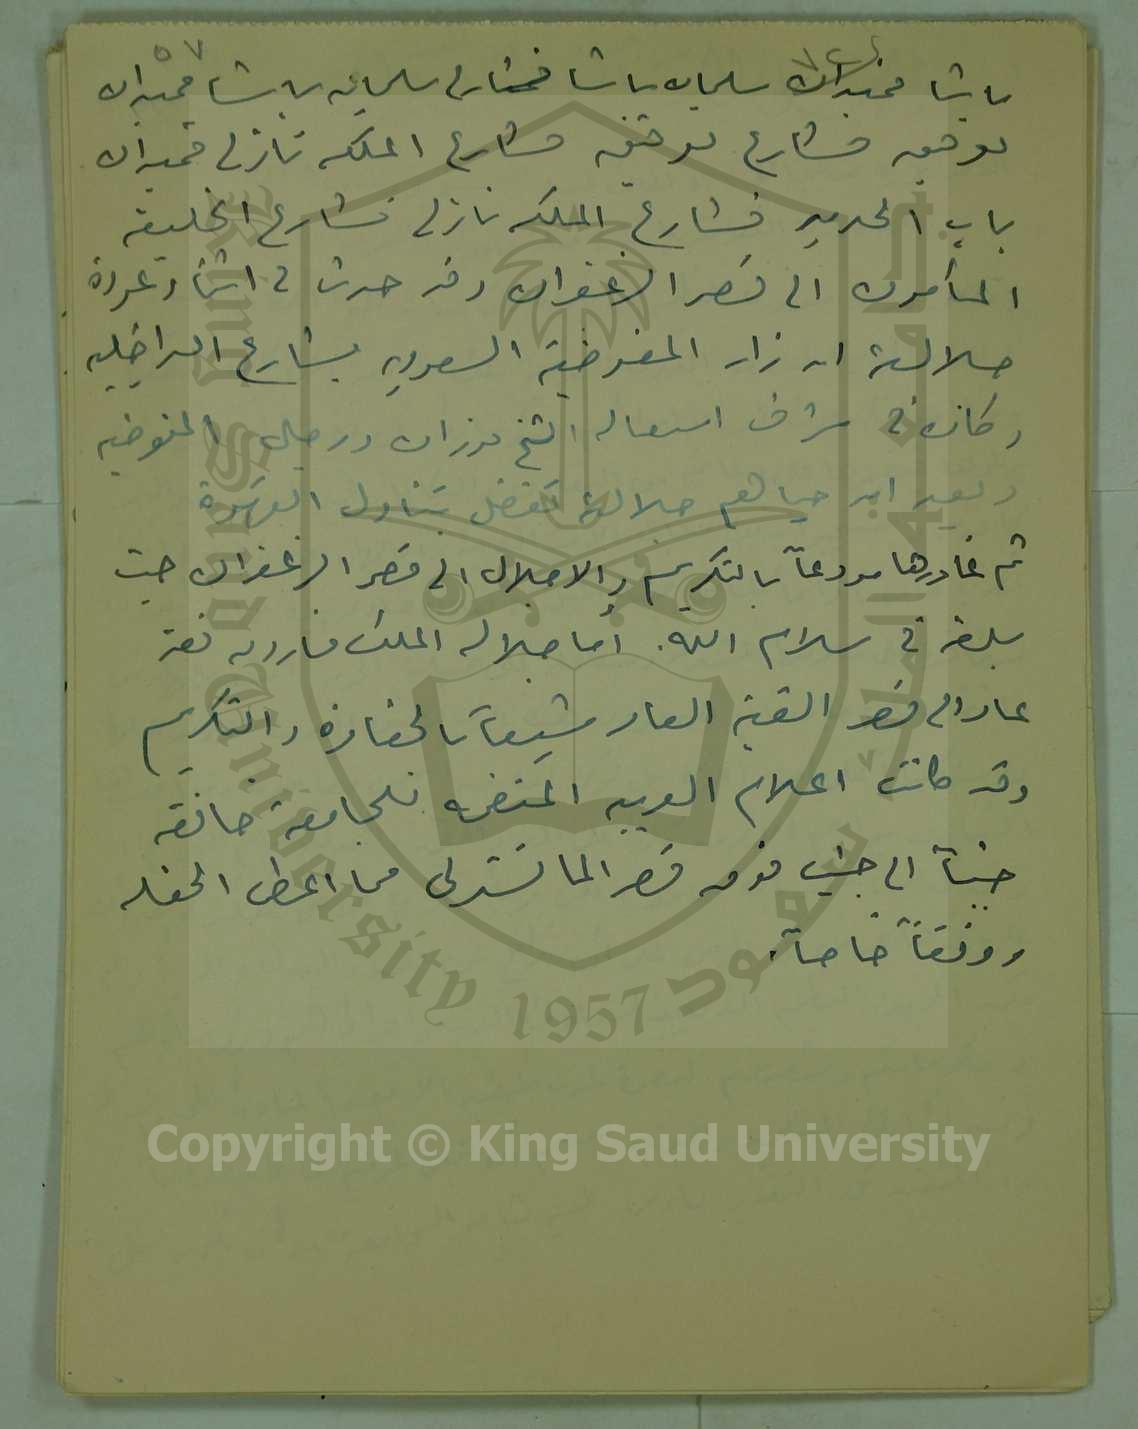 ٥٧
باشا فميدان سليمان باشا فشارع سليمان باشا فميدان
توفيق فشارع توفيق فشارع الملكه نازلى فميدان
باب الحديد فشارع الملكه نازلى فشارع الخليفة
المأمون الى قصر الزعفران وقد حدث فى اثناء عودة
جلالته ان زار المفوضية السعوديه بشارع
وكان فى شرف استقباله الشيخ فوزان ورجال المفوضيه
وبعد ان حياهم جلالته تفضل بتناول القهوة
ثم غادرها مودعاً بالتكريم والاجلال الى قصر الزعفران حيث
بلغه فى سلام الله. أما جلالة الملك فاروق فقد
عاد الى قصر القبة العامر مشيعاً بالحفاوة والتكريم
وقد كانت اعلام العربيه المنضمه للجامعة خافقة
جنباً الى جنب فوق قصر المانسترلى مما اعطى الحفله
رونقاً خاصاً.
Copyright © King Saud University
جامعة الملك سعود
King Saud University 1957